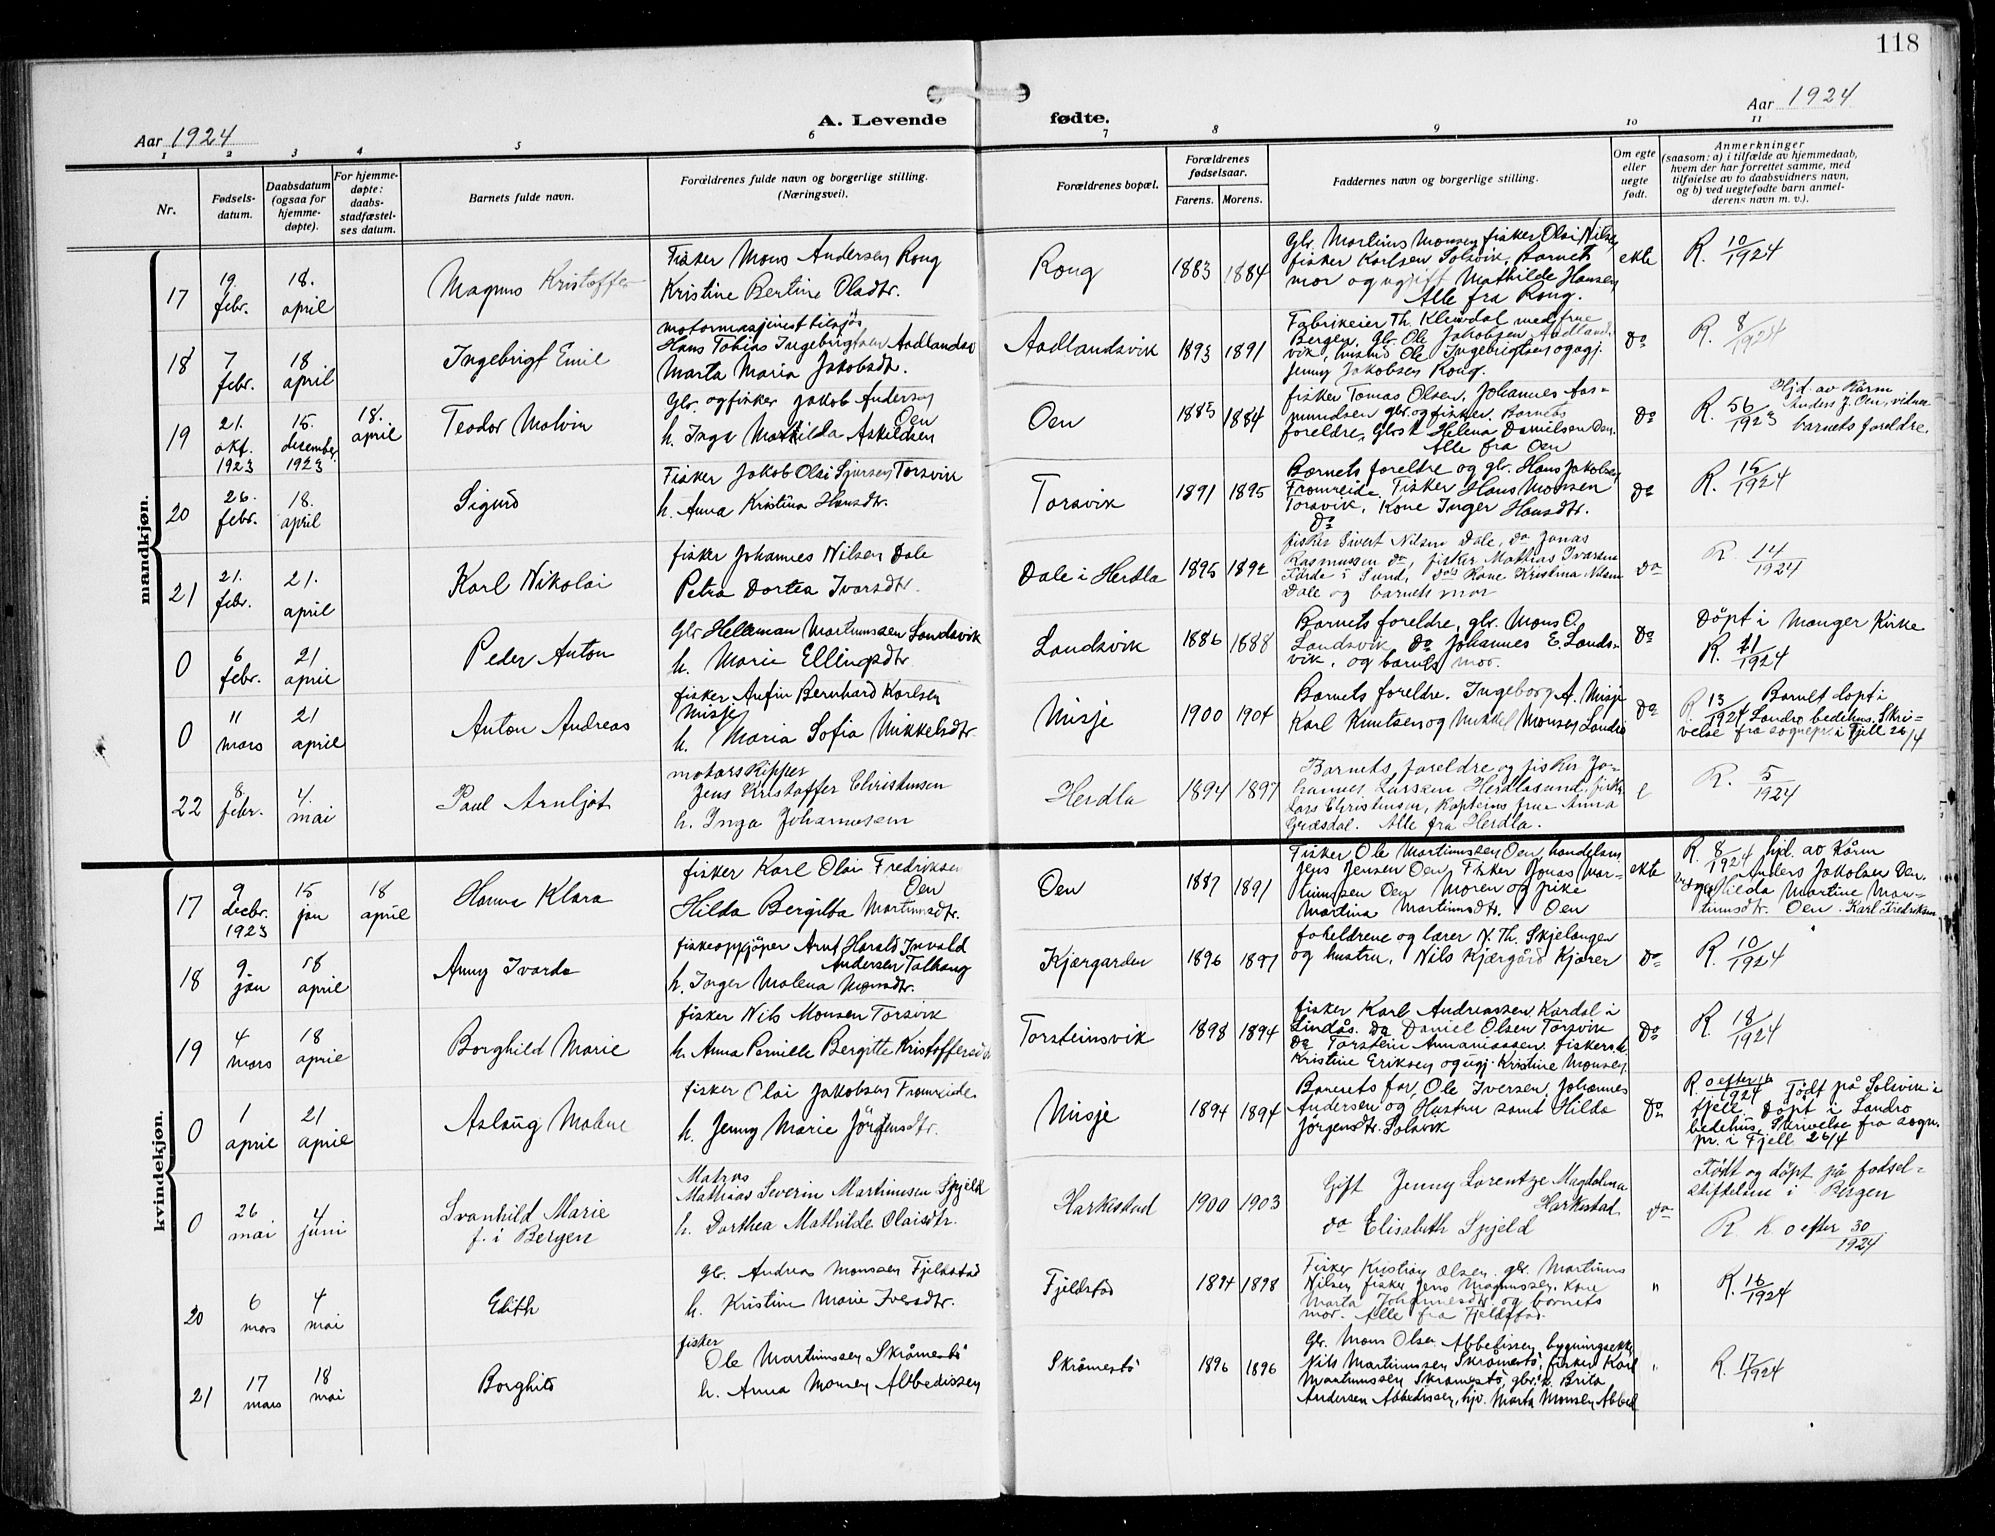 118
Aar 1924
A. Levende fødte.
Aar 1924
1 2 3 4 5 6 7 8 9 10 11
Nr.
Fødsels-
datum.
Daabsdatum
(ogsaa for
hjemme-
døpte).
For hjemme-
døpte:
daabs-
stadfæstel-
ses datum.
Barnets fulde navn.
Forældrenes fulde navn og borgerlige stilling.
(Næringsvei).
Forældrenes bopæl.
Forældrenes
fødselsaar.
Farens. Morens.
Faddernes navn og borgerlige stilling.
Om egte
eller
uegte
født.
Anmerkninger
(saasom: a) i tilfælde av hjemmedaab,
hvem der har forrettet samme, med
tilføielse av to daabsvidners navn,
og b) ved uegtefødte barn anmel-
derens navn m. v.).
mandkjøn.
17
19. febr.
18. april
Magnus Kristoffer
Fisker Mons Andersen Rong
Kristine Bertine Oladtr.
Rong
1883 1884
Gbr. Martinus Monsen fisker Olai Nilsen
fisker Karlsen Solsvik, Barnets
mor og ugift Mathilde Hansen
Alle fra Rong.
ekte
R. 10/1924
18
7 febr.
18 april
Ingebrigt Emil
motormasjinist tilsjøs
Hans Tobias Ingebrigtsen Aadlandsv
Marta Maria Jakobsdtr.
Aadlandsvik
1893 1891
Fabrikeier Th. Kleivdal med frue
Bergen, Gbr. Ole Jakobsen Aadlands-
vik, Ole Ingebrigtsen og ugj.
Jenny Jakobsen Rong.
Do
R. 8/1924
19
21. okt. 1923
15. desember 1923
18. april
Teodor Malvin
Gbr. og fisker Jakob Andersen
Oen
h. Inga Mathilda Askildsen
Oen
1885 1884
fisker Tomas Olsen, Johannes Aas-
mundsen gbr. og fisker. Barnets
foreldre, Helena Danielsen Oen.
Alle fra Oen
Do
R. 56/1923
Hjd. av Kårm
Anders J. Oen, vidne
barnets foreldre.
20
26. febr.
18. april
Sigurd
Fisker Jakob Olai Sjursen Torsvik
h. Anna Kristina Hansdtr.
Torsvik
1891 1895
Barnets foreldre og gbr. Hans Jakobsen
Fromreide, Fisker Hans Monsen
Torsvik, Kone Inger Hansdtr.
Do
Do
R. 15/1924
21
21. febr.
21. april
Karl Nikolai
fisker Johannes Nilsen Dale
Petra Dortea Ivarsdtr.
Dale i Herdla
1895 1892
fisker Sivert Nilsen Dale, do Jonas
Rasmussen do, fisker Mathias Ivarsen
Førde i Sund, do's Kone Kristina Nilsen
Dale og barnets mor
do
R. 14/1924
0
6 febr.
21 april
Peder Anton
Gbr Helleman Martinussen Landsvik
h. Marie Ellingsdtr.
Landsvik
1886 1888
Barnets foreldre, gbr. Mons O.
Landsvik Do Johannes E. Lands-
vik, og barnets mor.
Do
Döpt i Manger Kirke
R. 21/1924
0
11 mars
21 april
Anton Andreas
fisker Anfin Bernhard Karlsen
Misje
h. Maria Sofia Mikkelsdtr.
Misje
1900 1904
Barnets foreldre. Ingeborg A. Misje
Karl Knutsen og Mikkel Monsen Landro
Do
R. 13/1924 Barnet döpt i
Landro bedehus. Skri-
velse fra sognepr. i Fjell 26/4
22
8. febr.
4. mai
Paul Arnljot
motorskipper
Jens Kristoffer Christensen
h. Inga Johannesen
Herdla
1894 1897
Barnets foreldre og fisker Jo-
hannes Larssen Herdlasund, fisker
Lars Christensen, Kapteins frue Anna
Græsdal. Alle fra Herdla.
e
R. 5/1924
kvindekjøn.
17
9 decbr. 1923
15 jan
18 april
Hanna Klara
fisker Karl Olai Fredriksen
Oen
Hilda Bergitta Martinusdtr.
Oen
1887 1891
Fisker Ole Martinussen Oen, handelsm
Jens Jensen Oen Fisker Jonas Mar-
tinussen Oen Moren og pike
Martina Martinusdtr. Oen
ekte
R. 8/1924 hjd. av Kårm
Anders Jakobsen Oen.
Hilda Martine Mar-
tinusdtr. Oen. Karl Fredriksen
18
9 jan
18 april
Anny Ivarda
fiskeopkjöper Arnt Harald Invald
Andersen Talhaug
h. Inger Malena Monsdtr.
Kjærgarden
1896 1897
foreldrene og lærer N. Th. Skjelanger
og hustru, Nils Kjærgård Kjærer
Do
R. 10/1924
19
4 mars
18 april
Borghild Marie
fisker Nils Monsen Torsvik
h. Anna Pernille Bergitte Kristoffersdtr
Torsteinsvik
1898 1894
fisker Karl Andreassen Kardal i
Lindås. Do Daniel Olsen Torsvik
Do Torstein Annaniassen, fiskersk.
Kristine Eriksen og ugj. Kristine Monsen.
Do
R. 18/1924
0
1 april
21 april
Aslaug Malene
fisker Olai Jakobsen Fromreide
h. Jenny Marie Jörgensdtr.
Misje
1894 1894
Barnets far, Ole Iversen, Johannes
Andersen og Hustru samt Hilda
Jörgensdtr. Solsvik
Do
R. 0 efter 16/1924 Född på Solsvik i
fjell. Döpt i Landro
bedehus. Skrivelse fra sogn.
pr. i Fjell 26/4
0
26 mai
4 juni
Svanhild Marie
f. i Bergen
Matros
Mathias Severin Martinusen Spjeld
h. Dorthea Mathilde Olaisdtr.
Harkestad
1900 1903
Gift Jenny Lorentze Magdalena
Harkestad
do Elisabeth Spjeld
do
Född og döpt på fodsel-
stiftelsen i Bergen
R. K. 0 efter 30/1924
20
6 mars
4 mai
Edith
gbr. Andreas Monssen Fjeldstad
h. Kristine Marie Iversdtr.
Fjeldstad
1894 1898
Fisker Kristian Olsen. gbr. Martinus
Nilsen, fisker Jens Magnussen, Kone
Marta Johannesdtr. og barnets
mor. Alle fra Fjeldstad.
"
R. 16/1924
21
17 mars
18 mai
Borghild
fisker
Ole Martinussen Skråmestö
h. Anna Monsen Abbedissen
Skråmestö
1896 1896
Gbr. Mons Olsen Abbedissen, bygningsekk.
Nils Martinussen Skråmestö, fisker Karl
Martinussen Skråmestö, gbr.k. Brita
Andersen Abbedissen, hjv. Marta Monsen Abbed
"
R. 17/1924